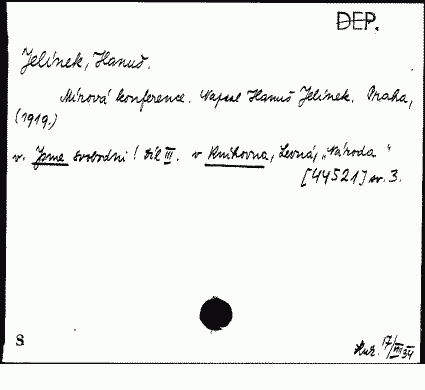 DEP.
Jelínek, Hanuš.
Mírová konference. Napsal Hanuš Jelínek. Praha,
(1919.)
v. Jsme svobodni! Díl III. v Knihovna, Levná, „Národa“
[44521] sv. 3.
S
17/VIII 34